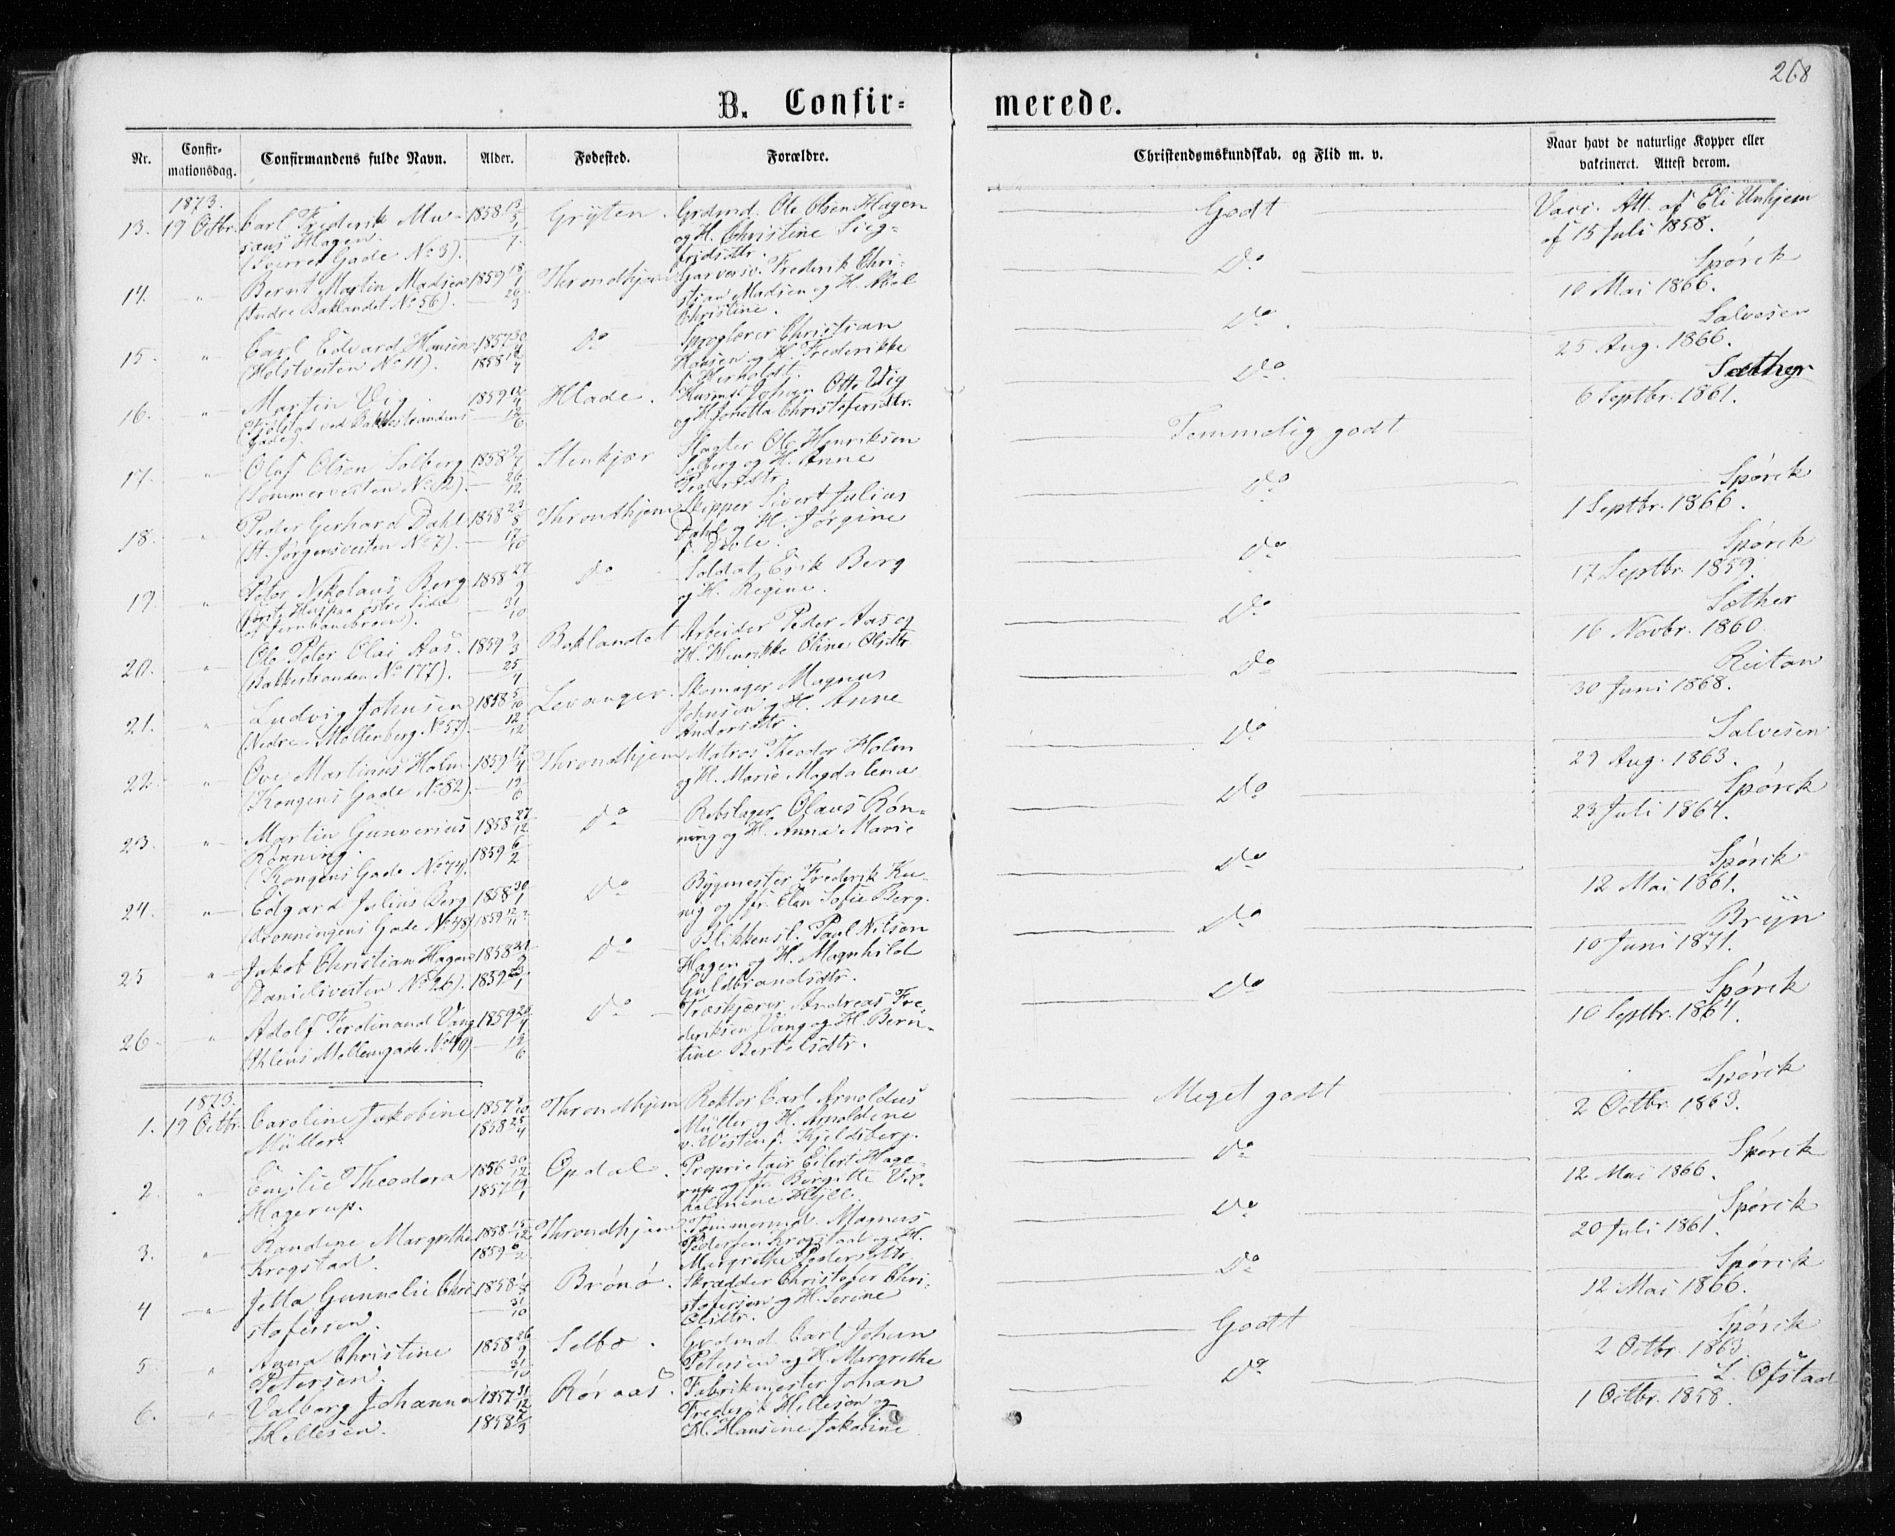 268
B. Confir=
merede.
Nr.
Confir-
mationsdag.
Confirmandens fulde Navn.
Alder.
Fødested.
Forældre.
Christendomskundskab. og Flid m. v.
Naar havt de naturlige Kopper eller
vakcineret. Attest derom.
1873.
13. 19 Octbr. Carl Frederik Mu- 1858 Gryten. Grdmd. Ole Olsen Hagen Godt Vacc. Att. af Eli Unhjem
sæus Hagen. og H. Christine Sieg- af 15 Juli 1858.
Gade No 3). fridsdtr.
14. " Bernt Martin Madsen 1859 Throndhjem Garversv. Frederik Chri- Do Spørck
(Indre Baklandet No 56). stian Madsen og H. 10 Mai 1866.
Christine.
15. " Carl Edvard Hansen 1857 Do Christian Do Salvesen
(Holstvesten No 11). 1858 Hansen og H. Frederikke 25 Aug. 1866.
16. " Martin Vig 1859 Hlade. Husmd. Johan Otto Vig Do Sæther
og H. Christofersdtr. 6 Septbr. 1861.
Gade).
17. " Oluf Olsen Solberg 1858 Stenkjær Slagter Ole Henriksen Temmelig godt
(Sommervesten No 12). Solberg og H. Anne
Pedersdtr.
18. " Peder Gerhard Dahl 1858 Throndhjem Skipper Sivert Julius Do Spørck
(St. Jørgensvesten No 7). Dahl og H. Jørgine 1 Septbr. 1866.
19. " Peter Nikolaus Berg 1858 Do Soldat Erik Berg Do Spørck
(første Hus paa østre Side og H. Regine. 17 Septbr. 1859.
af Jernbanebroen).
20. " Ole Peter Olai Aas. 1859 Baklandet Arbeider Peder Aas og Do Sæther
(Bakkestranden No 177). H. Henrikke Oline Olsdtr. 16 Novbr. 1860.
21. " Ludvig Johnsen 1858 Levanger. Skomager Magnus Do Reitan
(Nedre Møllenberg No 57). Johnsen og H. Anne 30 Juni 1868.
Andersdtr.
22. " Ove Martinus Holm 1859 Throndhjem Matros Theodor Holm Do Salvesen
(Kongens Gade No 82). og H. Marie Magdalena 29 Aug. 1863.
23. " Martin Gunverius 1858 Do Rebslager Olaus Røn- Do Spørck
Rønning. 1859 ning og H. Anna Marie 23 Juli 1864.
(Kongens Gade No 74).
24. " Edgard Julius Berg 1858 Do Bygmester Frederik Kü- Do Spørck
Dronningens Gade No 48). 1859 nig og Elen Sofie Berg. 12 Mai 1861.
25 " Jakob Christian Hagen 1858 Do Blikkensl. Paul Nilsen Do Bryn
(Danielsvesten No 26). 1859 Hagen og H. Magnhild 10 Juni 1871.
Guldbrandsdtr.
26. " Adolf Ferdinand Vang 1859 Do Træskjærer Andreas Fre- Do Spørck
(Ihlens Mellemgade No 49). deriksen Vang og H. Bern- 10 Septbr. 1864.
tine Bertelsdtr.
1873.
1. 19 Octbr. Caroline Jakobine 1857 Throndhjem Rektor Carl Arnoldus Meget godt Spørck
Müller. 1858 Müller og H. Arnoldine 2 Octbr. 1863.
v. Westen f. Kjeldsberg.
2. " Emilie Theodora 1856 Opdal. Proprietair Eilert Hage- Do Spørck
Hagerup. 1857 rup og Fr. Birgitte Vil- 12 Mai 1866.
helmine
3. " Randine Margrethe 1858 Throndhjem Tømmermd. Magnus Do Spørck
Krogstad. 1859 Pedersen Krogstad og H. 20 Juli 1861.
Margrethe Pedersdtr.
4 " Jetta Gunnelie Chri 1858 Brønø. Skrædder Christofer Chri- Do Spørck
stofersen. stofersen og H. Serine 12 Mai 1866.
Olsdtr.
5. " Anna Christine 1858 Selbo. Grdmd. Carl Johan Godt Spørck
Petersen. Petersen og H. Margrethe 2 Octbr. 1863.
6. " Valborg Johanna 1857 Røraas. Fabrikmester Johan Do L. Ofstad
Hellesen. 1858 Frederik Hellesen og 1 Octbr. 1858.
H. Hansine Jakobine